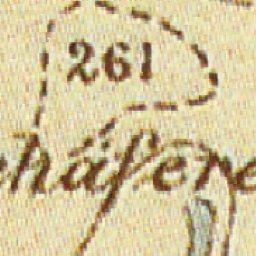 261
häfere